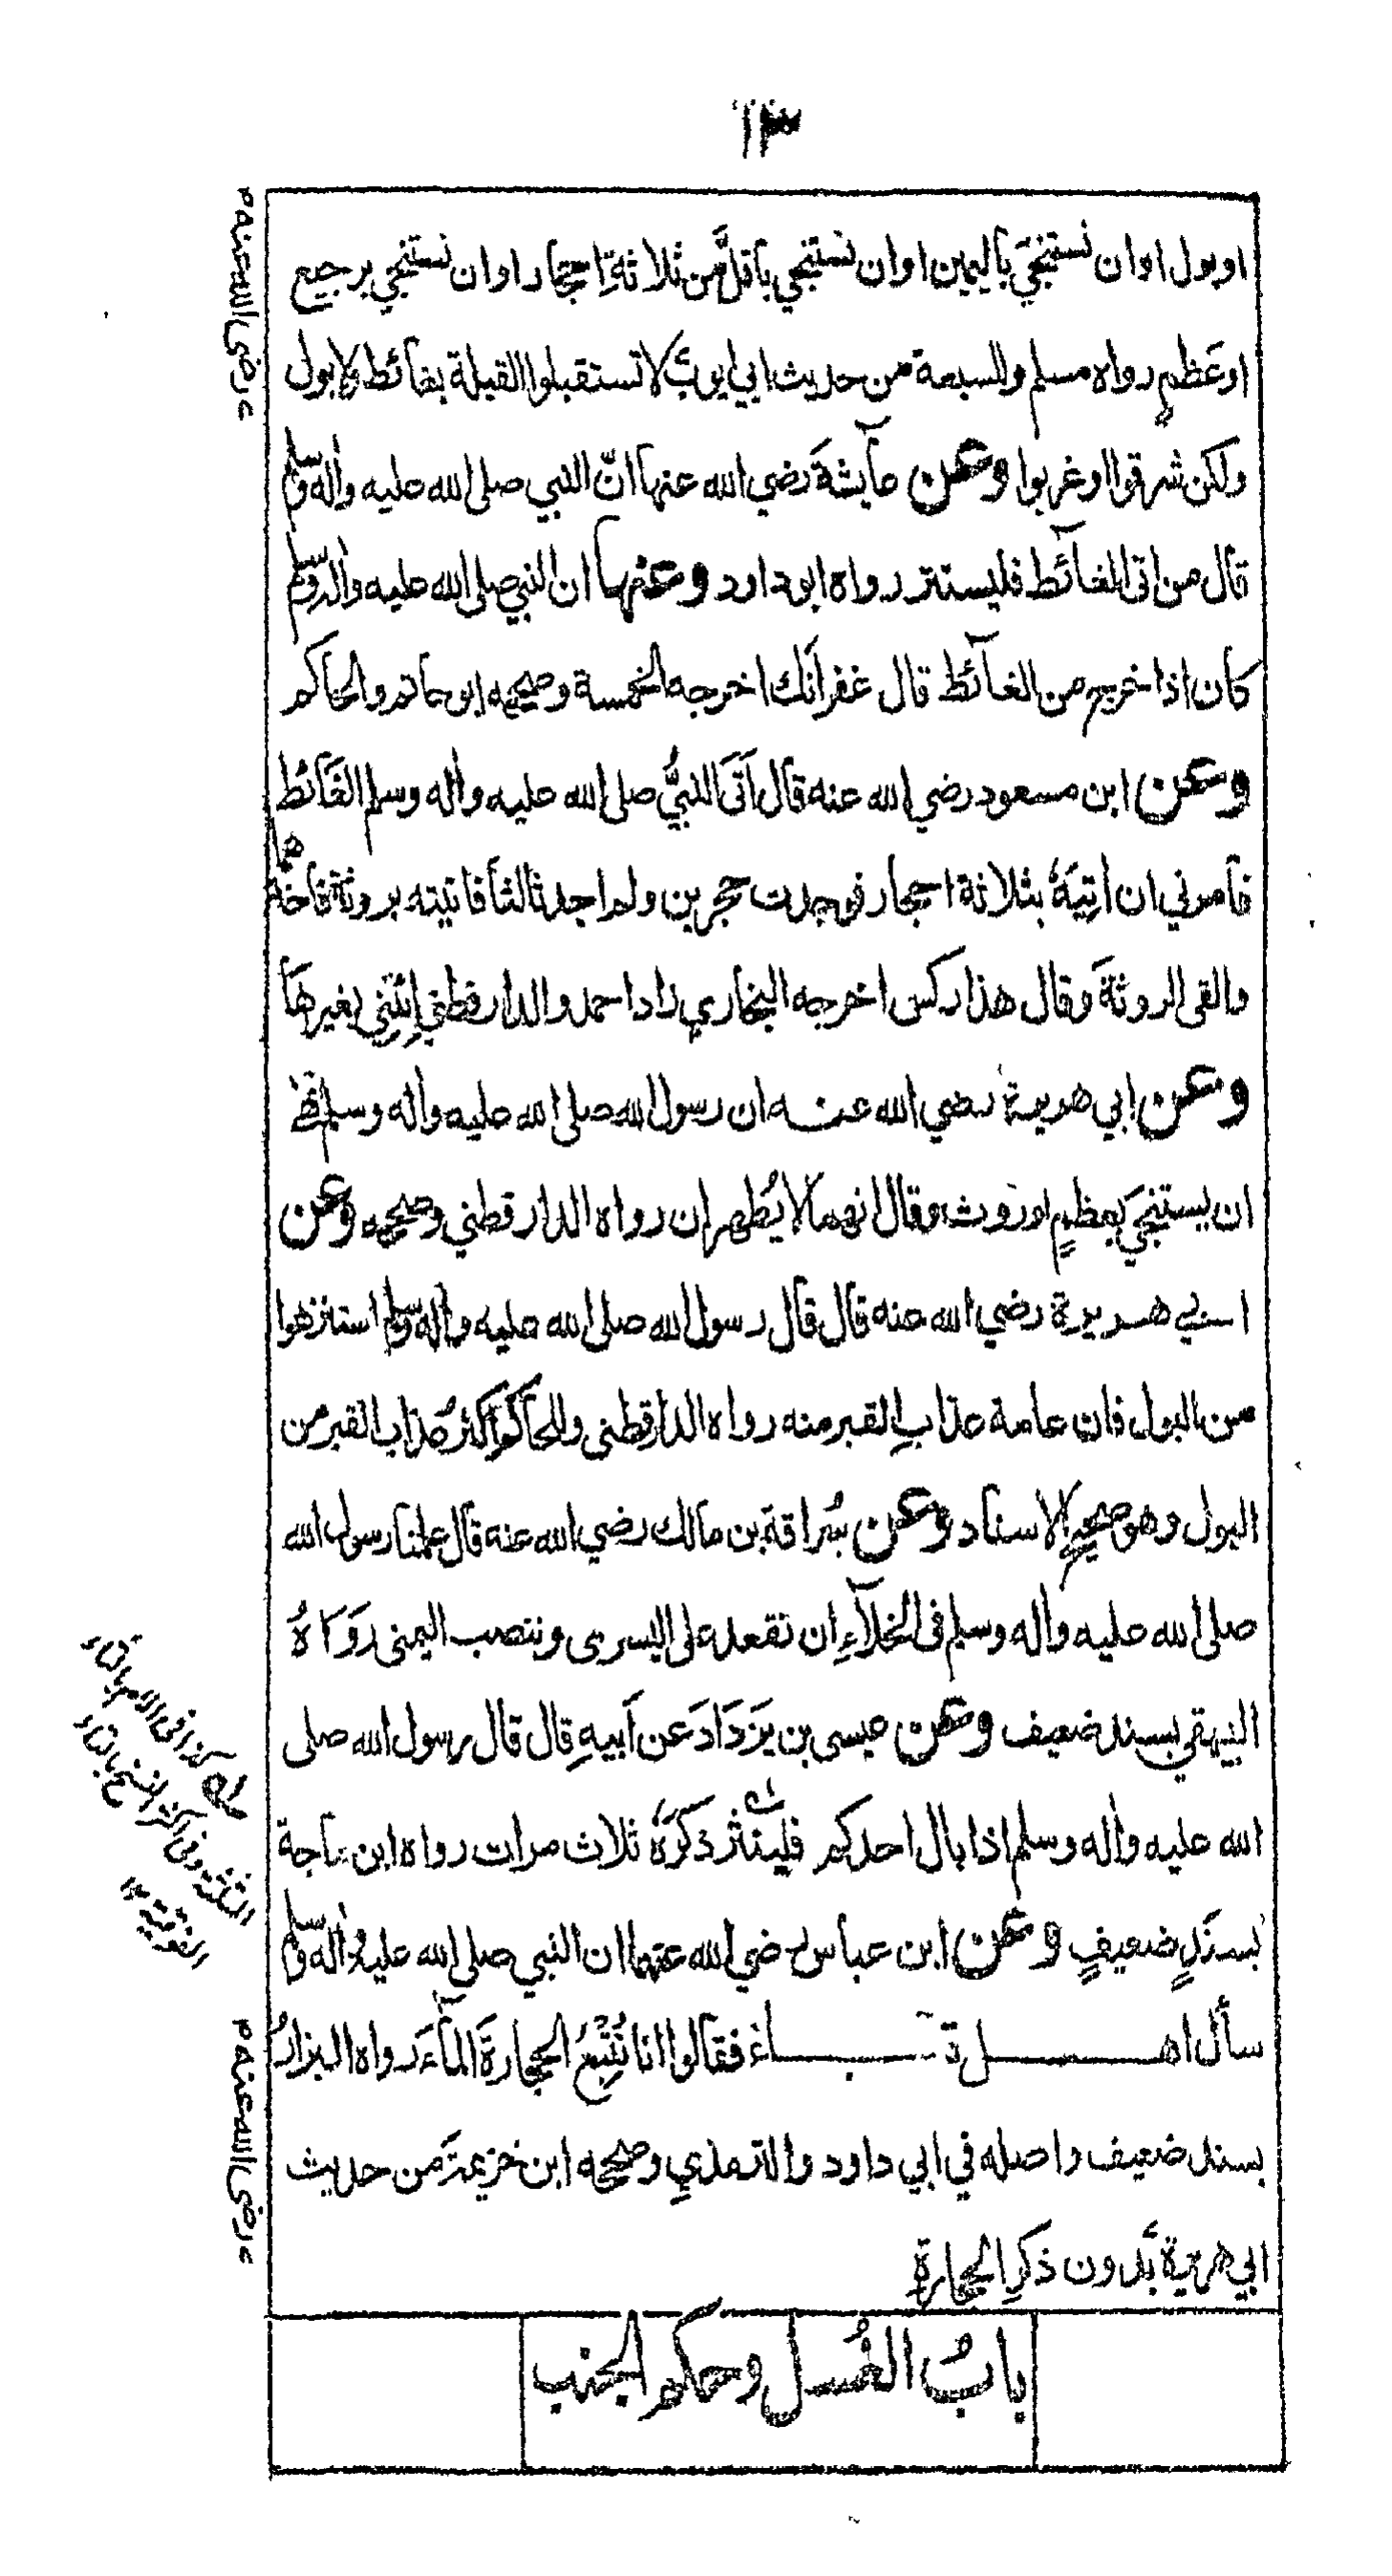 ١٣
او بول او ان نستنجيَ باليمين او ان نستنجي باقلَّ من ثلاثةِ احجار او ان نستنجي برجيع
او عَظمٍ رواه مسلم وللسبعة من حديث ابي ايوبَ لا تستقبلوا القبلة بغائط ولا بول
ولكن شرقوا او غربوا وعن عآيشةَ رضي الله عنها انّ النبي صلى الله عليه واٰله وسلم
قال من اتى الغآئط فليستتر رواه ابو داود وعنها ان النبي صلى الله عليه واٰله وسلم
كان اذا خرج من الغآئط قال غفرانَك اخرجه الخمسة وصححه ابو حاتم والحاكم
وعن ابن مسعود رضي الله عنه قال اَتَى النبيُّ صلى الله عليه واٰله وسلم الغَائطَ
فامرني ان اٰتِيَهٗ بثلاثة احجار فوجدت حجرين ولم اجد ثالثا فاتيته بروثة فاخذهما
والقى الروثةَ وقال هذا ركس اخرجه البخاري زاد احمد والدارقطني اِئتِنِي بغيرهَا
وعن ابي هريرة رضي الله عنه ان رسول الله صلى الله عليه واٰله وسلم نهى
ان يستنجيَ بعظمٍ او روث وقال انهما لا يُطهران رواه الدارقطني وصححه وعن
ابي هريرة رضي الله عنه قال قال رسول الله صلى الله عليه واٰله وسلم استنزهوا
من البول فان عامة عذابِ القبر منه رواه الدارقطني وللحاكم اكثرُ عذاب القبر من
البول وهو صحيح الاسناد وعن سُراقة بن مالك رضي الله عنه قال علمنا رسول الله
صلى الله عليه واٰله وسلم فى الخلآءِ ان نقعد على اليسرى وننصب اليمنى رَوَاهُ
البيهقي بسند ضعيف وعن عيسى بن يَزدَادَ عن اَبيهِ قال قال رسول الله صلى
الله عليه واٰله وسلم اذا بال احدكم فليَنثر ذَكَرَهٗ ثلاث مرات رواه ابن ماجة
بسندٍ ضعيفٍ وعن ابن عباس رضي الله عنهما ان النبي صلى الله عليه واٰله وسلم
سأل اهل قبآء فقالوا انا نُتْبِعُ الحجارةَ المآءَ رواه البزارُ
بسند ضعيف واصله في ابي داود والترمذي وصححه ابن خزيمة من حديث
ابي هريرة بدون ذكرِ الحجارة
بابُ الغُسل وحكم الجنب
ع رضى الله عنه م
كذا فى الام بالثاء
المثلثة وفى اكثر النسخ بالتاء
الفوقية ١٢
ع رضى الله عنه م